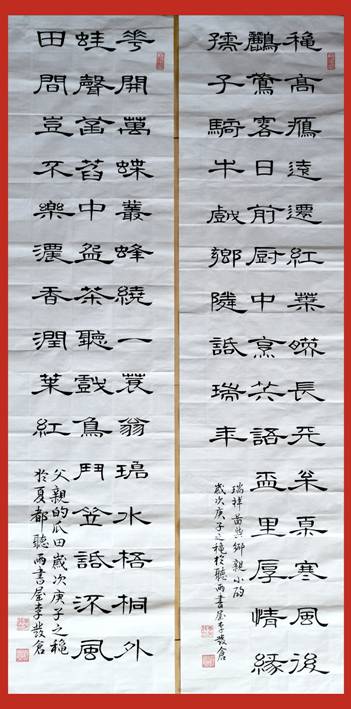 穐高鴈遠遷紅葉暎長天寒風後
鸝鶯客日前厨中烹共語盃里厚情緣
孺子騎牛戲鄉隨話瑞年
瑞祥鄉親小酌
歲次庚子之穐於聽雨書屋李發倉
華開萬蝶叢蜂繞一蓑翁水梧桐外
蛙聲菡萏中盆茶聽戲鳥鬥笠話風
田間豈不樂濃香潤葉紅
父親的瓜田歲次庚子之穐
於夏都聽雨書屋李發倉